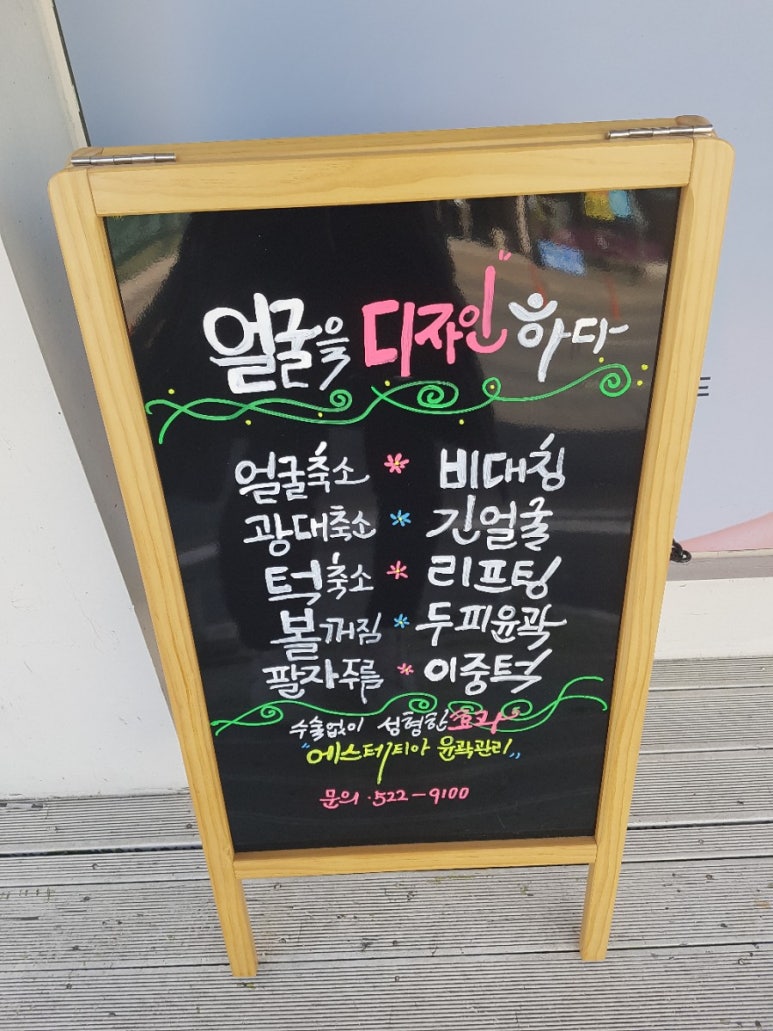 얼굴을 디자인하다
얼굴축소 * 비대칭
광대축소 * 긴얼굴
턱축소 * 리프팅
볼꺼짐 * 두피윤곽
팔자주름 * 이중턱
수술없이 성형한 효과
"에스테티아 윤곽관리"
문의.522-9100